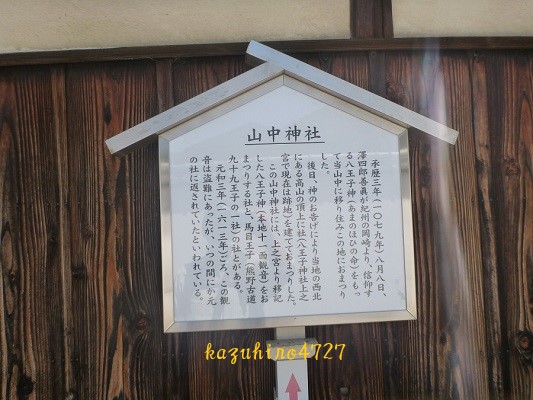 山中神社
承歴三年(一〇七九年)八月八日、
澤四郎善眞が紀州の岡崎より、信仰す
る八王子神(あまのほひの命)をもっ
て当山中に移り住みこの地におまつり
した。
後日、神のお告げにより当地の西北
にある高山の頂上に社(八王子神社上之
宮で現在は跡地)を建てておまつりした。
この山中神社には、上之宮より移記
した八王子神(本地十一面観音)をお
まつりする社と、馬目王子(熊野古道
九十九王子の一社)の社とがある。
元和三年(一六一三年)ごろ、この観
音は盗難にあったが、いつの間にか元
の社に返されていたといわれている。
kazuhiro4727